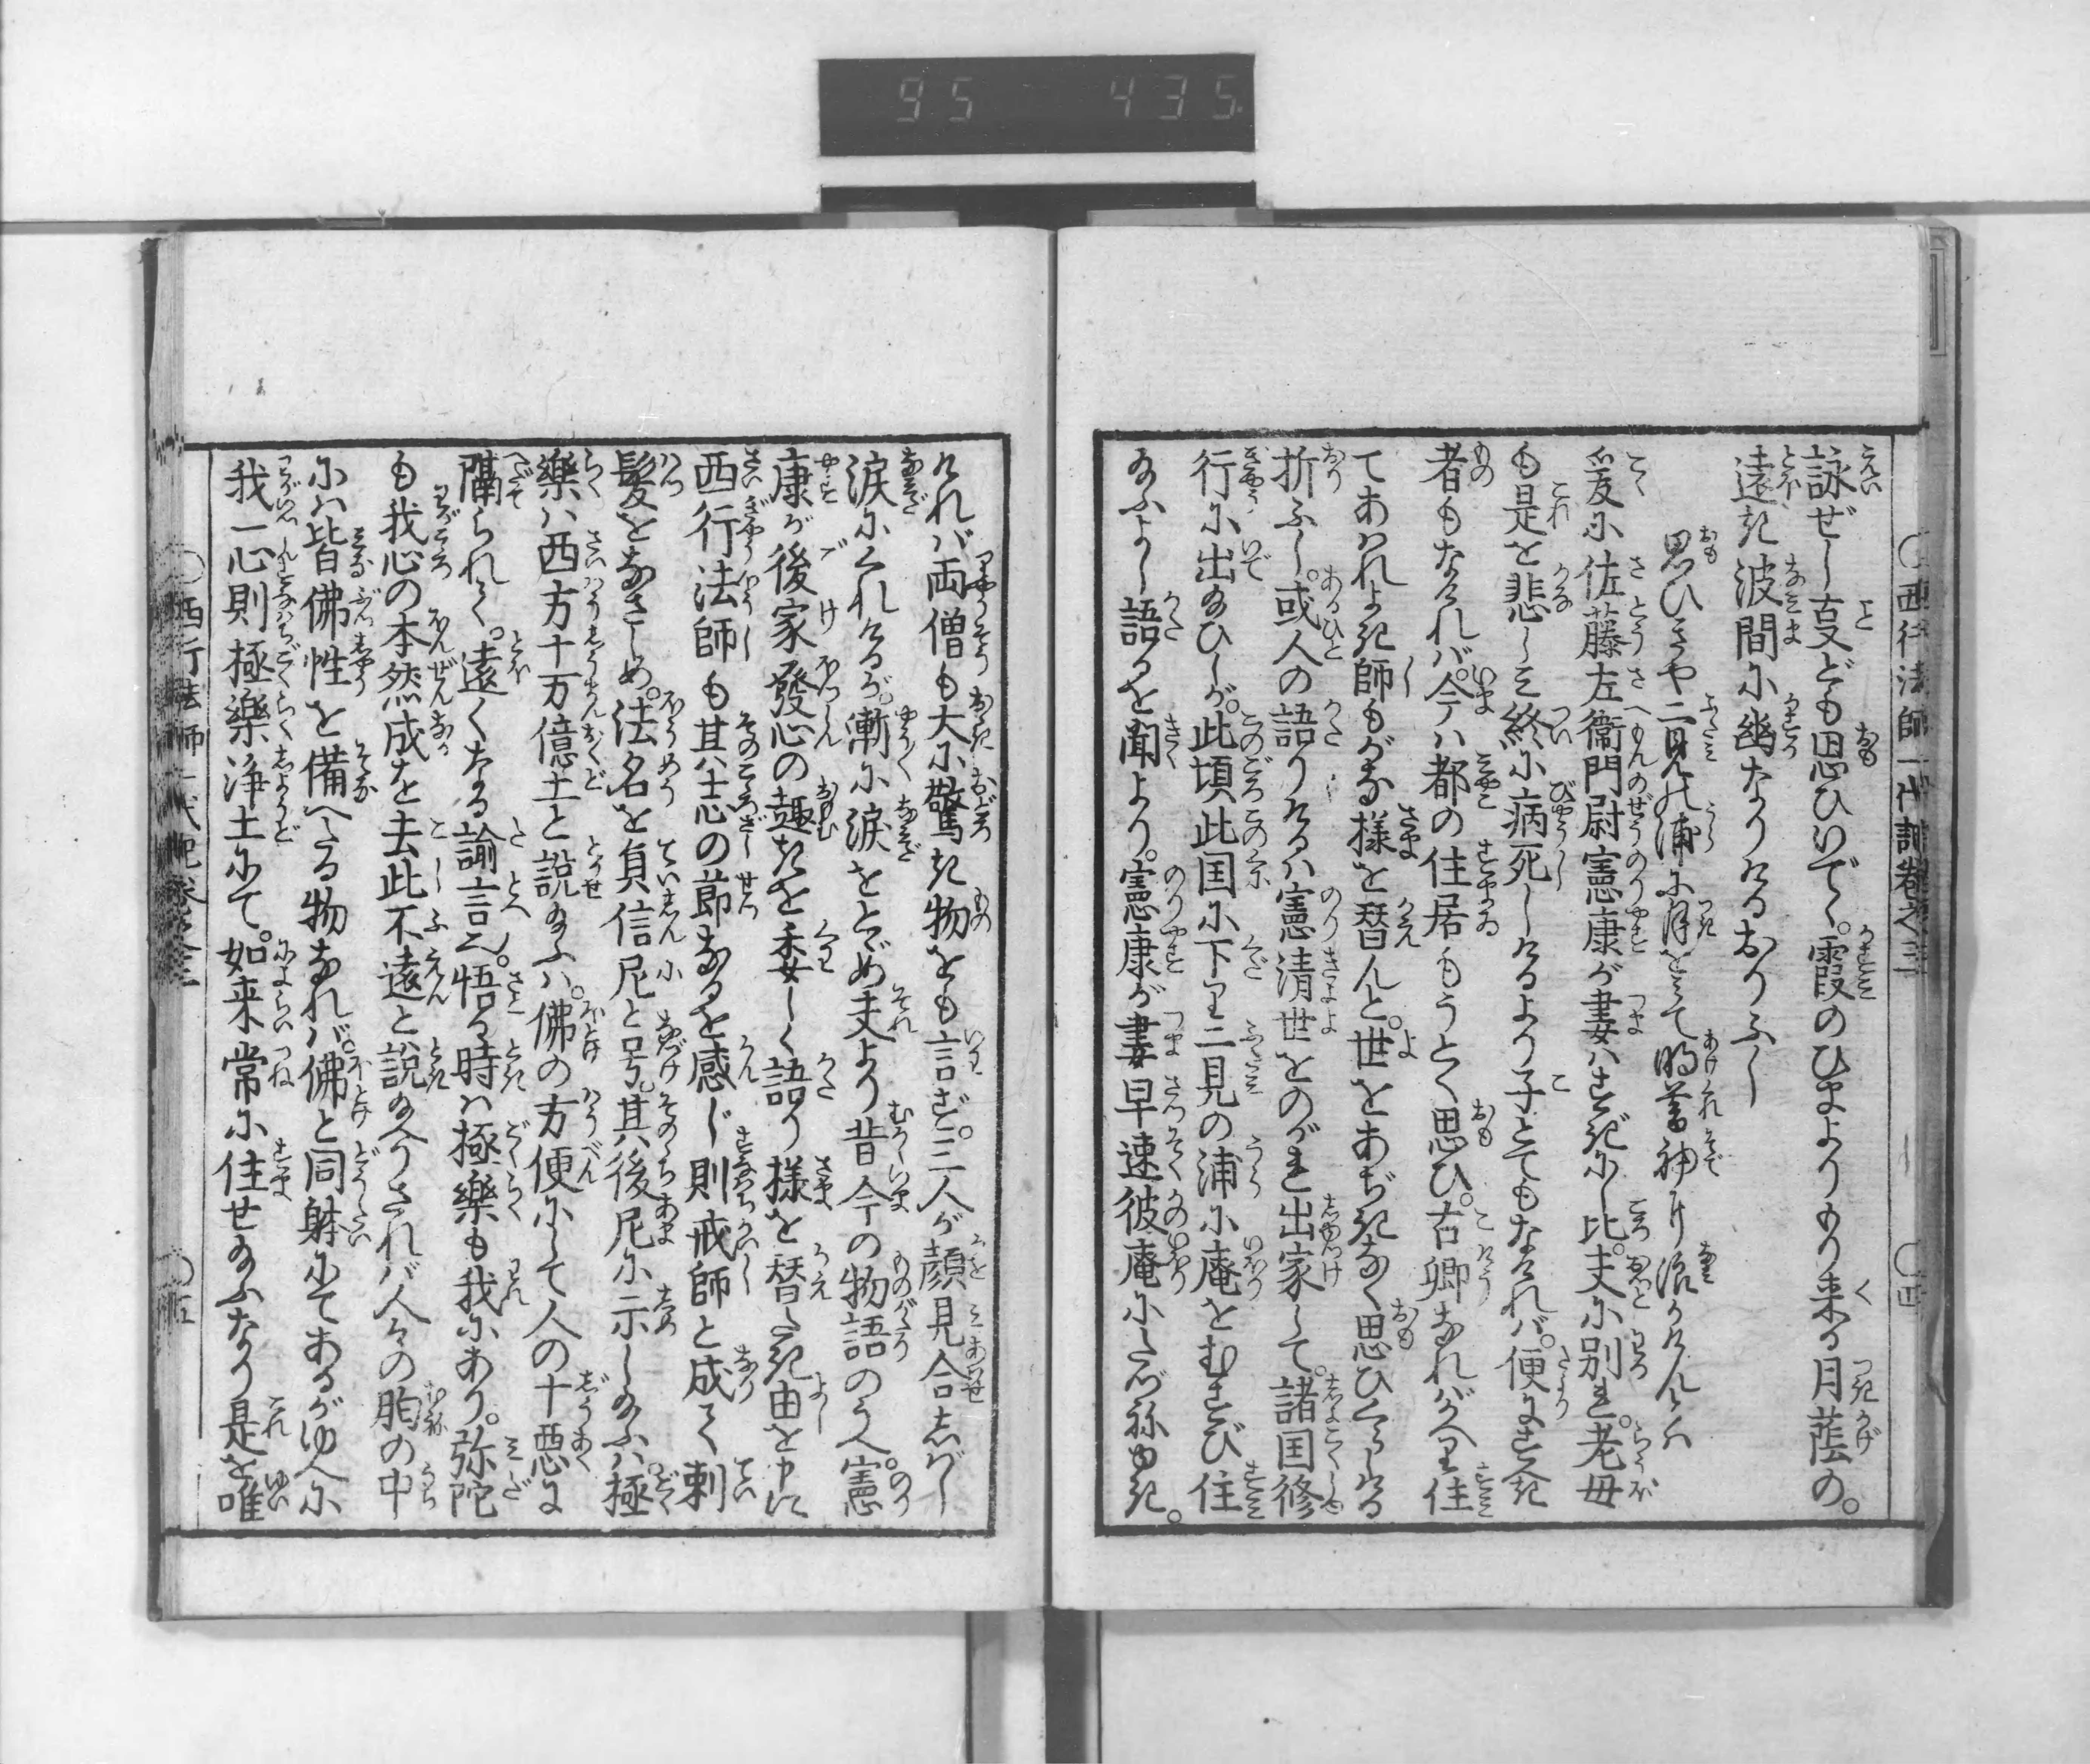 95 435
西行法師一代記巻之三
詠ぜし㕝ども思ひいで。霞のひまよりもり来る月蔭の。
遠き波間に幽なりけるおりふし
思ひきや二見の浦に月を見て明暮袖に浪かけんとは
爰に佐藤左衞門尉憲康が妻はすぎにし比。夫に別れ。老母
も是を悲しみ終に病死しけるより子とてもなければ。便よすべき
者もなければ。今は都の住居もうとく思ひ。古郷なればかへり住
てあはれよき師もがな様を替んと。世をあぢきなく思ひくらしける
折ふし。或人の語りけるは憲清世をのがれ出家して。諸国修
行に出給ひしが。此頃此国に下り二見の浦に庵をむすび住
給ふよし語るを聞より。憲康が妻早速彼庵にたづねゆき。
ければ両僧も大に驚き物をも言ず。三人が顔見合しばし
涙にくれけるが。漸に涙をとゞめ夫より昔今の物語のうへ。憲
康が後家發心の趣きを委しく語り様を替たき由を申に
西行法師も其志の節なるを感じ則戒師と成て剃
髪をなさしめ。法名を貞信尼と号。其後尼に示し給ふは。極
樂は西方十万億土と説給ふは。佛の方便にして人の十悪に
隔られて。遠くなる諭言也。悟る時は極樂も我にあり。弥陀
も我心の本然成を去此不遠と説給へりされば人々の胸の中
には皆佛性を備へたる物なれば。佛と同躰にてあるがゆへに
我一心則極樂浄土にて。如来常に住せ給ふなり是を唯
西行法師一代記巻之三